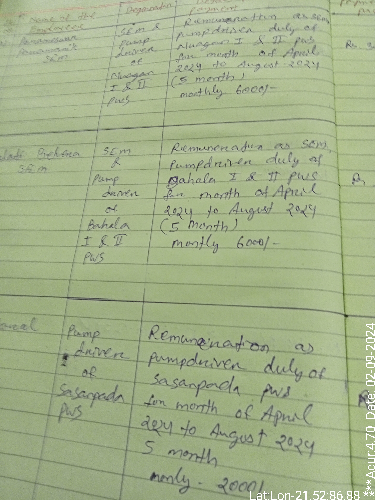 Name of the
Designation
Remuneration as SEM
SEM &
Pump driver duly of
Pump
Nuagan I & II PWS
driver
for month of April
of
2024 to August 2024
Nuagan
(5 month)
I & II
monthly 6000/-
PWS
Rs.
SEM
Behera
SEM
SEM
&
Pump
driver
of
Bahala
I & II
PWS
Remuneration as SEM
Pumpdriver duly of
Bahala I & II PWS
for month of April
2024 to August 2024
(5 month)
montly 6000/-
Rs
Pump
driver
of
Sasanpada
PWS
Remuneration as
pumpdriver duly of
Sasanpada PWS
for month of April
2024 to August 2024
5 month
monly - 2000/-
Lat:Lon-21.52:86.88***Acur:4.70 Date:02-09-2024